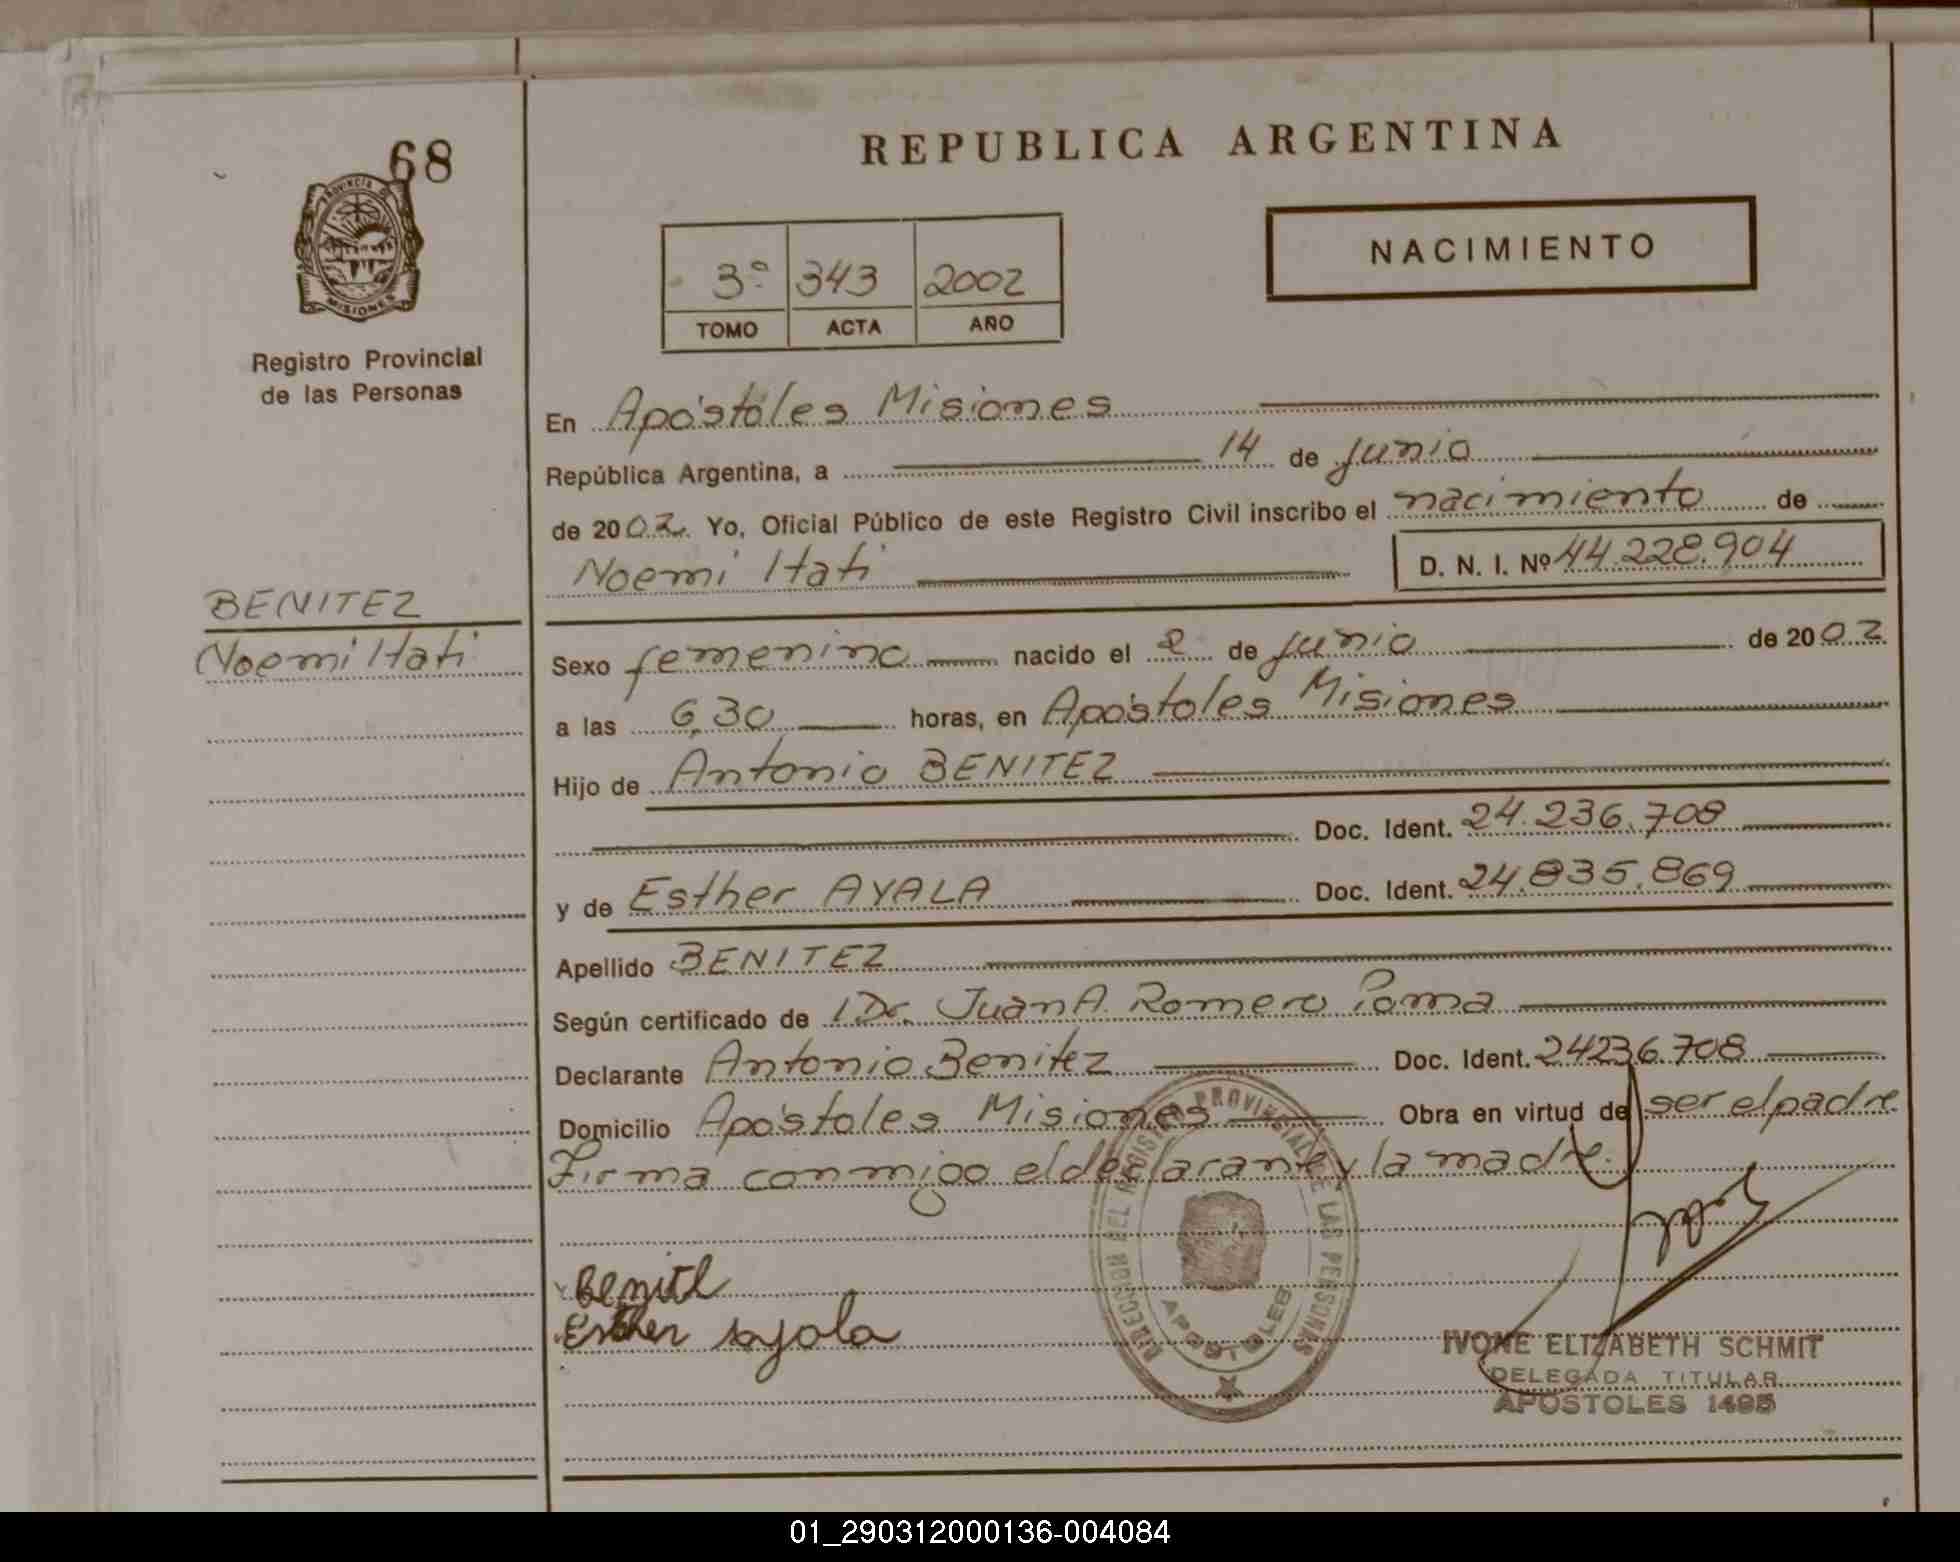 68
PROVINCIA DE
MISIONES
Registro Provincial
de las Personas
BENITEZ
Noemi Itati
REPUBLICA ARGENTINA
NACIMIENTO
3º 343 2002
TOMO ACTA AÑO
En Apóstoles Misiones
República Argentina, a 14 de Junio
de 2002. Yo, Oficial Público de este Registro Civil inscribo el nacimiento de
Noemi Itati D. N. I. Nº 44.228.904
Sexo femenino nacido el 2 de Junio de 2002
a las 6,30 horas, en Apóstoles Misiones
Hijo de Antonio BENITEZ
Doc. Ident. 24.236.708
y de Esther AYALA Doc. Ident. 24.835.869
Apellido BENITEZ
Según certificado de Dr. Juan A. Romero Poma
Declarante Antonio Benitez Doc. Ident. 24236.708
Domicilio Apóstoles Misiones Obra en virtud de ser el padre
Firma conmigo el declarante y la madre.
Benitez
Esther Ayala
DIRECCION DEL REGISTRO PROVINCIAL DE LAS PERSONAS
APOSTOLES
IVONE ELIZABETH SCHMIT
DELEGADA TITULAR
APOSTOLES 1495
01_290312000136-004084